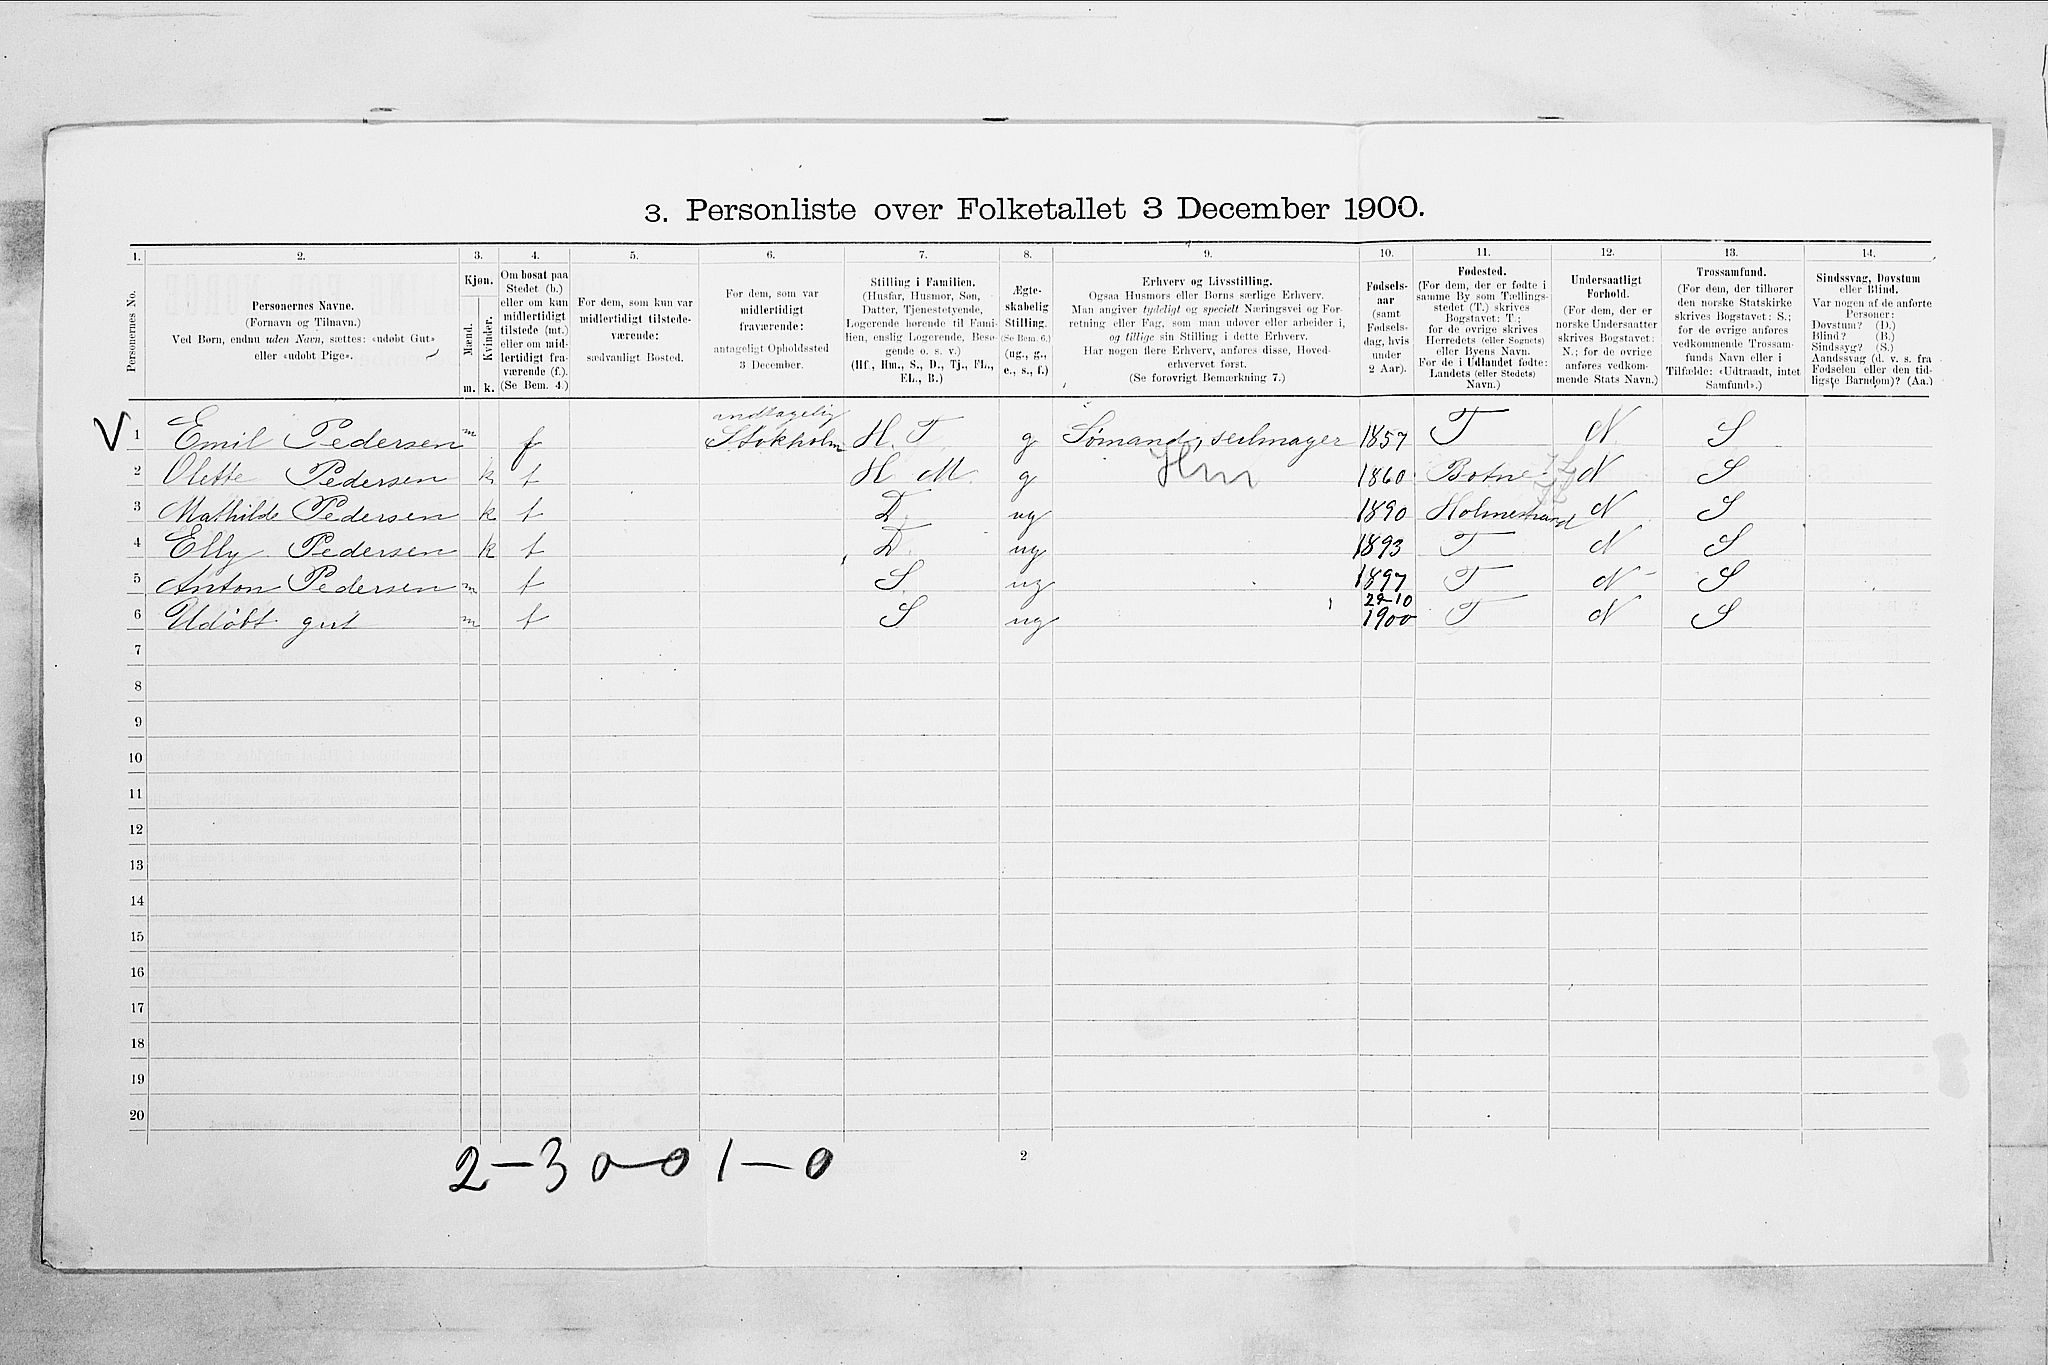 3. Personliste over Folketallet 3 December 1900.
1. 2. 3. 4. 5. 6. 7. 8. 9. 10. 11. 12. 13. 14.
Personernes No.
Personernes Navne.
(Fornavn og Tilnavn.)
Ved Børn, endnu uden Navn, sættes: «udøbt Gut»
eller «udøbt Pige».
Kjøn.
Mænd.
Kvinder.
m. k.
Om bosat paa
Stedet (b.)
eller om kun
midlertidigt
tilstede (mt.)
eller om mid-
lertidigt fra-
værende (f.).
(Se Bem. 4.)
For dem, som kun var
midlertidigt tilstede-
værende:
sædvanligt Bosted.
For dem, som var
midlertidigt
fraværende:
antageligt Opholdssted
3 December.
Stilling i Familien.
(Husfar, Husmor, Søn,
Datter, Tjenestetyende,
Logerende hørende til Fami-
lien, enslig Logerende, Besø-
gende o. s. v.)
(Hf., Hm., S., D., Tj., FL.,
EL., B.)
Ægte-
skabelig
Stilling.
(Se Bem. 6.)
(ug., g.,
e., s., f.)
Erhverv og Livsstilling.
Ogsaa Husmors eller Børns særlige Erhverv.
Man angiver tydeligt og specielt Næringsvei og For-
retning eller Fag, som man udøver eller arbeider i,
og tillige sin Stilling i dette Erhverv.
Har nogen flere Erhverv, anføres disse, Hoved-
erhvervet først.
(Se forøvrigt Bemærkning 7.)
Fødsels-
aar
(samt
Fødsels-
dag, hvis
under
2 Aar).
Fødested.
(For dem, der er fødte i
samme By som Tællings-
stedet (T.) skrives
Bogstavet: T.;
for de øvrige skrives
Herredets (eller Sognets)
eller Byens Navn.
For de i Udlandet fødte:
Landets (eller Stedets)
Navn.)
Undersaatligt
Forhold.
(For dem, der er
norske Undersaatter
skrives Bogstavet:
N.; for de øvrige
anføres vedkom-
mende Stats Navn.)
Trossamfund.
(For dem, der tilhører
den norske Statskirke
skrives Bogstavet: S.;
for de øvrige anføres
vedkommende Trossam-
funds Navn eller i
Tilfælde: «Udtraadt, intet
Samfund».)
Sindssvag, Døvstum
eller Blind.
Var nogen af de anførte
Personer:
Døvstum? (D.)
Blind? (B.)
Sindssyg? (S.)
Aandssvag (d. v. s. fra
Fødselen eller den tid-
ligste Barndom)? (Aa.)
V 1 Emil Pedersen m f andtagelig Stokholm H. F. g Sømand, seilmager 1857 T N. S
2 Olette Pedersen k t H M. g Hm 1860 Botne N S
3 Mathilde Pedersen k t D. ug 1890 Holmestrand N. S
4 Elly Pedersen k t D. ug 1893 T N S
5 Anton Pedersen m t S. ug 1897 T N S
6 Udöbt gut m t S ug 22-10 1900 T N S
7
8
9
10
11
12
13
14
15
16
17
18
19
20
2-3 0-0 1-0
2